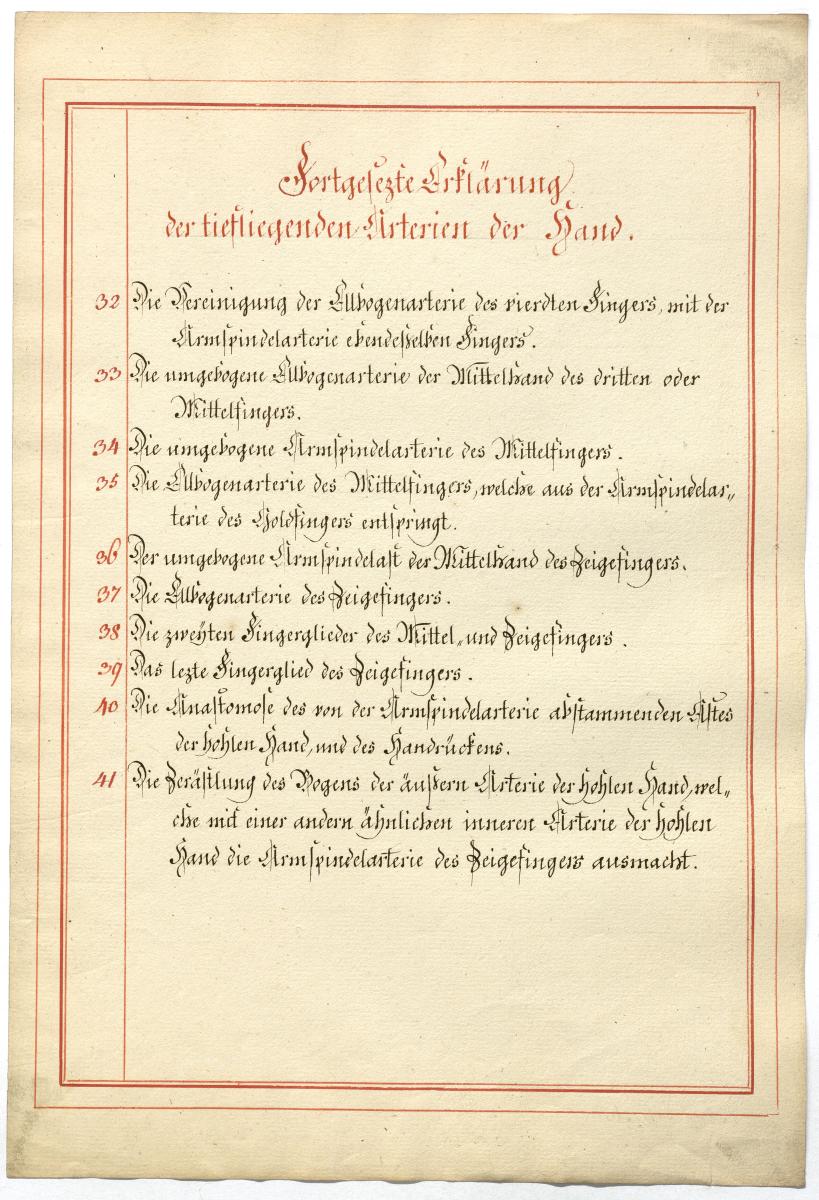 Fortgesezte Erklärung
der tiefliegenden Arterien der Hand.
32 Die Vereinigung der Ellbogenarterie des vierdten Fingers, mit der
Armspindelarterie ebendesselben Fingers.
33 Die umgebogene Ellbogenarterie der Mittelhand des dritten oder
Mittelfingers.
34 Die umgebogene Armspindelarterie des Mittelfingers.
35 Die Ellbogenarterie des Mittelfingers, welche aus der Armspindelar„
terie des Goldfingers entspringt.
36 Der umgebogene Armspindelast der Mittelhand des Zeigefingers.
37 Die Ellbogenarterie des Zeigefingers.
38 Die zweÿten Fingerglieder des Mittel„ und Zeigefingers.
39 Das lezte Fingerglied des Zeigefingers.
40 Die Anastomose des von der Armspindelarterie abstammenden Astes
der hohlen Hand, und des Handrückens.
41 Die Zerästlung des Bogens der äußern Arterie der hohlen Hand, wel„
che mit einer andern ähnlichen inneren Arterie der hohlen
Hand die Armspindelarterie des Zeigefingers ausmacht.